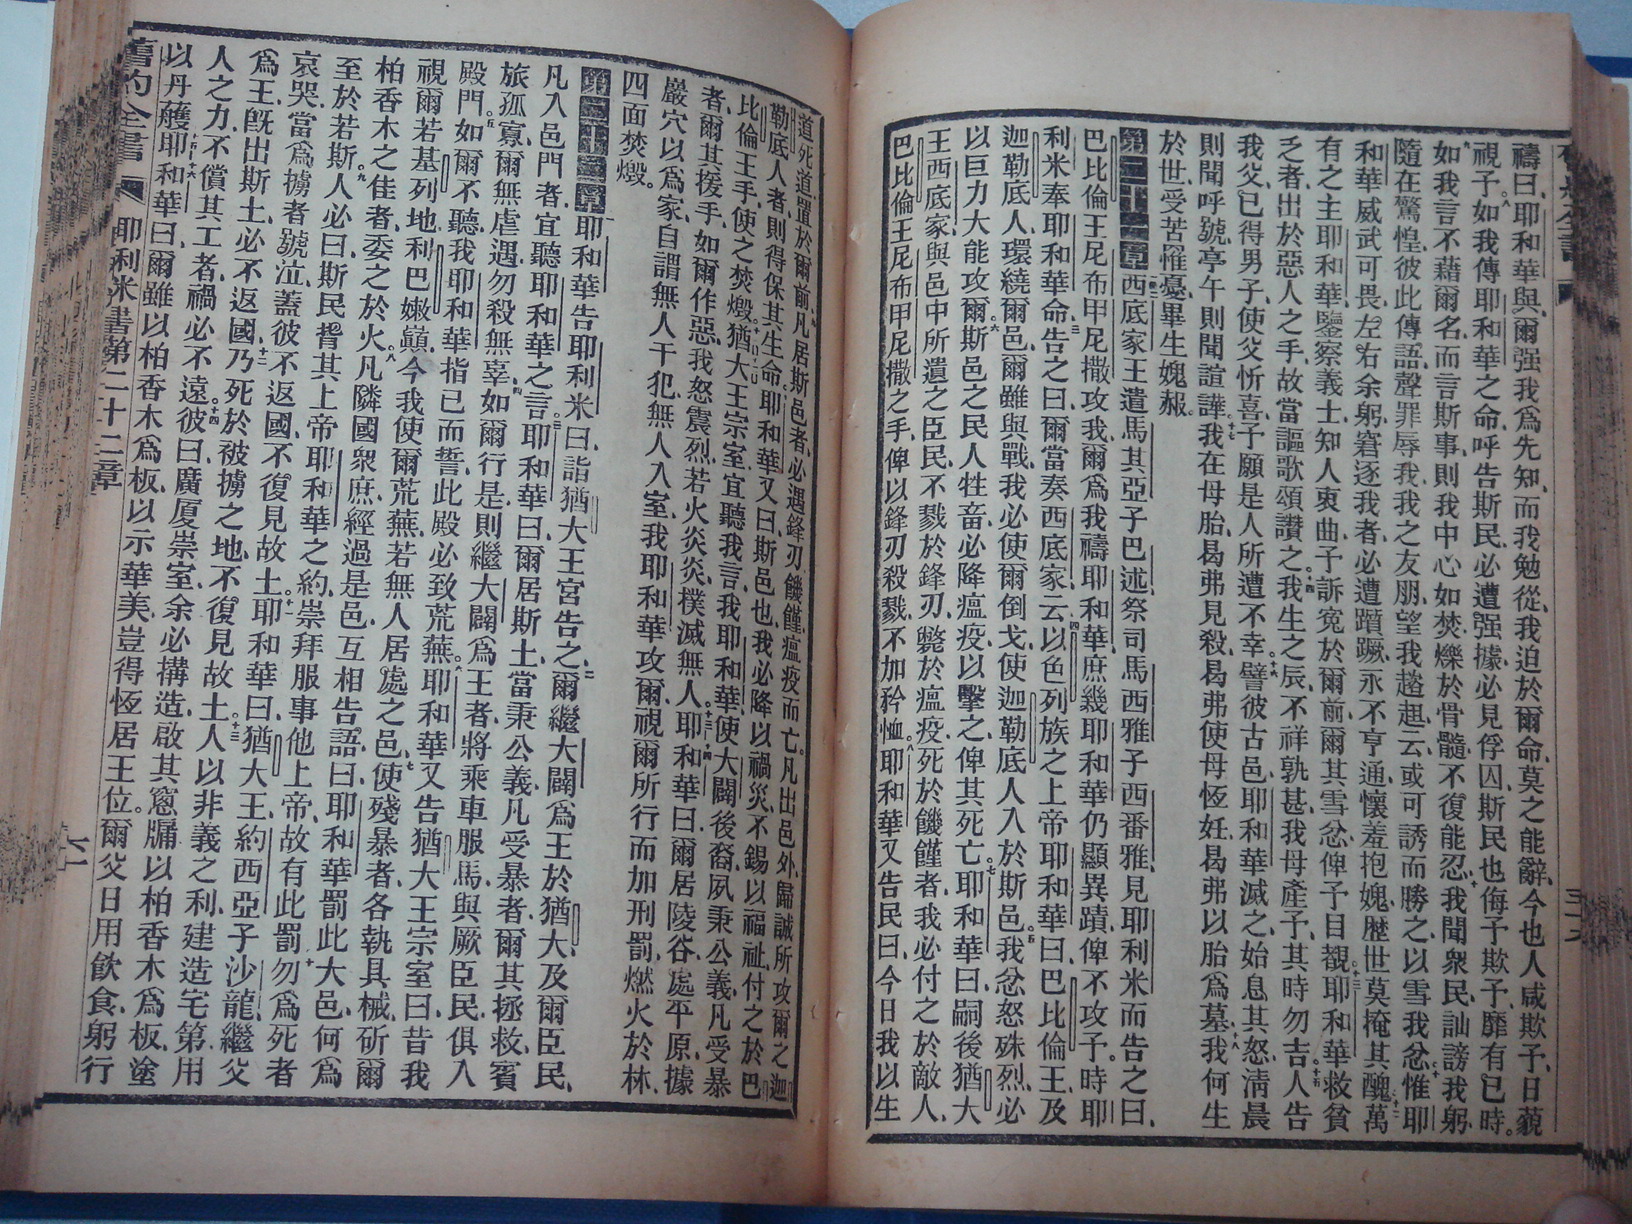 禱曰耶和華與爾强我爲先知而我勉從我迫於爾命莫之能辭今也人咸欺予日藐
視予如我傳耶和華之命呼告斯民必遭强據必見俘囚斯民也侮予欺予靡有已時
如我言不藉爾名而言斯事則我中心如焚爍於骨髓不復能忍我聞衆民訕謗我躬
隨在驚惶彼此傳語聲罪辱我我之友朋望我趑趄云或可誘而勝之以雪我忿惟耶
和華威武可畏左右余躬窘逐我者必遭蹟蹶永不亨通懷羞抱媿歷世莫掩其醜萬
有之主耶和華鑒察義士知人衷曲予訴寃於爾前爾其雪忿俾予目覩耶和華救貧
乏者出於惡人之手故當謳歌頌讚之我生之辰不祥孰甚我母產予其時勿吉人告
我父已得男子使父忻喜予願是人所遭不幸譬彼古邑耶和華滅之始息其怒淸晨
則聞呼號亭午則聞諠譁我在母胎曷弗見殺曷弗使母恆妊曷弗以胎爲墓我何生
於世受苦罹憂畢生媿赧
第二十一章西底家王遣馬其亞子巴述祭司馬西雅子西番雅見耶利米而告之曰
巴比倫王尼布甲尼撒攻我爾爲我禱耶和華庶幾耶和華仍顯異蹟俾不攻予時耶
利米奉耶和華命告之曰爾當奏西底家云以色列族之上帝耶和華曰巴比倫王及
迦勒底人環繞爾邑爾雖與戰我必使爾倒戈使迦勒底人入於斯邑我忿怒硃烈必
以巨力大能攻爾斯邑之民人牲畜必降瘟疫以擊之俾其死亡耶和華曰嗣後猶大
王西底家與邑中所遺之臣民不戮於鋒刃斃於瘟疫死於饑饉者我必付之於敵人
巴比倫王尼布甲尼撒之手俾以鋒刃殺戮不加矜恤耶和華又告民曰今日我以生
道死道置於爾前凡居斯邑者必遇鋒刃饑饉瘟疫而亡凡出邑外歸誠所攻爾之迦
勒底人者則得保其生命耶和華又曰斯邑也我必降以禍災不錫以福祉付之於巴
比倫王手使之焚燬猶大王宗室宜聽我言我耶和華使大闢後裔夙秉公義凡受暴
者爾其援手如爾作惡我怒震烈若火炎炎撲滅無人耶和華曰爾居陵谷處平原據
巖穴以爲家自謂無人干犯無人入室我耶和華攻爾視爾所行而加刑罰燃火於林
四面焚燬
第二十二章耶和華告耶利米曰詣猶大王宮告之爾繼大闢爲王於猶大及爾臣民
凡入邑門者宜聽耶和華之言耶和華曰爾居斯土當秉公義凡受暴者爾其拯救賓
旅孤寡爾無虐遇勿殺無辜如爾行是則繼大闢爲王者將乘車服馬與厥臣民俱入
殿門如爾不聽我耶和華指已而誓此殿必致荒蕪耶和華又告猶大王宗室曰昔我
視爾若基列地利巴嫩巔今我使爾荒蕪若無人居處之邑使殘暴者各執具械斫爾
柏香木之佳者委之於火凡隣國衆庶經過是邑互相告語曰耶和華罰此大邑何爲
至於若斯人必曰斯民背其上帝耶和華之約崇拜服事他上帝故有此罰勿爲死者
哀哭當爲擄者號泣蓋彼不返國不復見故土耶和華曰猶大王約西亞子沙龍繼父
爲王旣出斯土必不返國乃死於被擄之地不復見故土人以非義之利建造宅第用
人之力不償其工者禍必不遠彼曰廣厦崇室余必搆造啟其窻牖以柏香木爲板塗
以丹雘耶和華曰爾雖以柏香木爲板以示華美豈得恆居王位爾父日用飮食躬行
舊約全書 耶利米書第二十二章